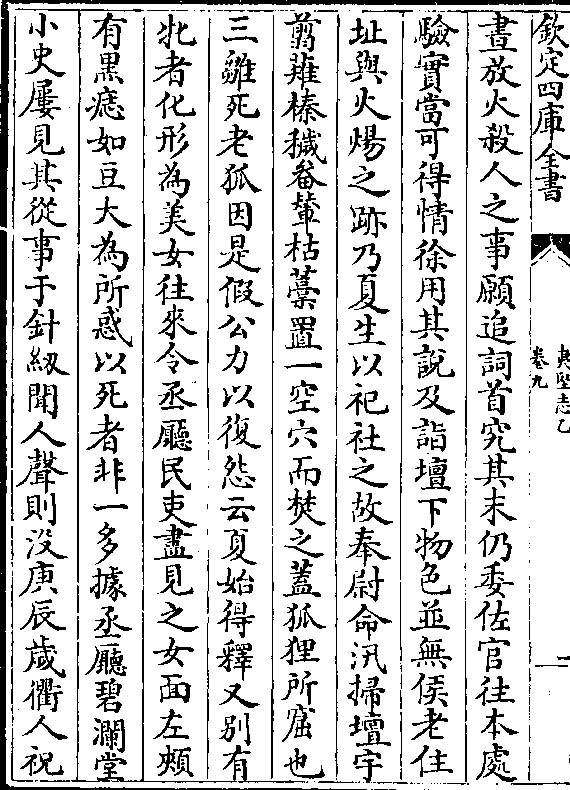 欽定四庫全書
夷堅志乙
卷九
一
晝放火殺人之事願追詞首究其末仍委佐官往本處
驗實當可得情徐用其說及詣壇下物色並無侯老住
址與火煬之跡乃夏生以祀社之故奉尉命汛掃壇宇
翦薙榛穢畚輦枯藁置一空穴而焚之蓋狐狸所窟也
三雛死老狐因是假公力以復怨云夏始得釋又别有
牝者化形為美女往來令丞廳民吏盡見之女面左頰
有黒痣如豆大為所惑以死者非一多據丞廳碧瀾堂
小史屢見其從事于針紉聞人聲則没庚辰歲衢人祝